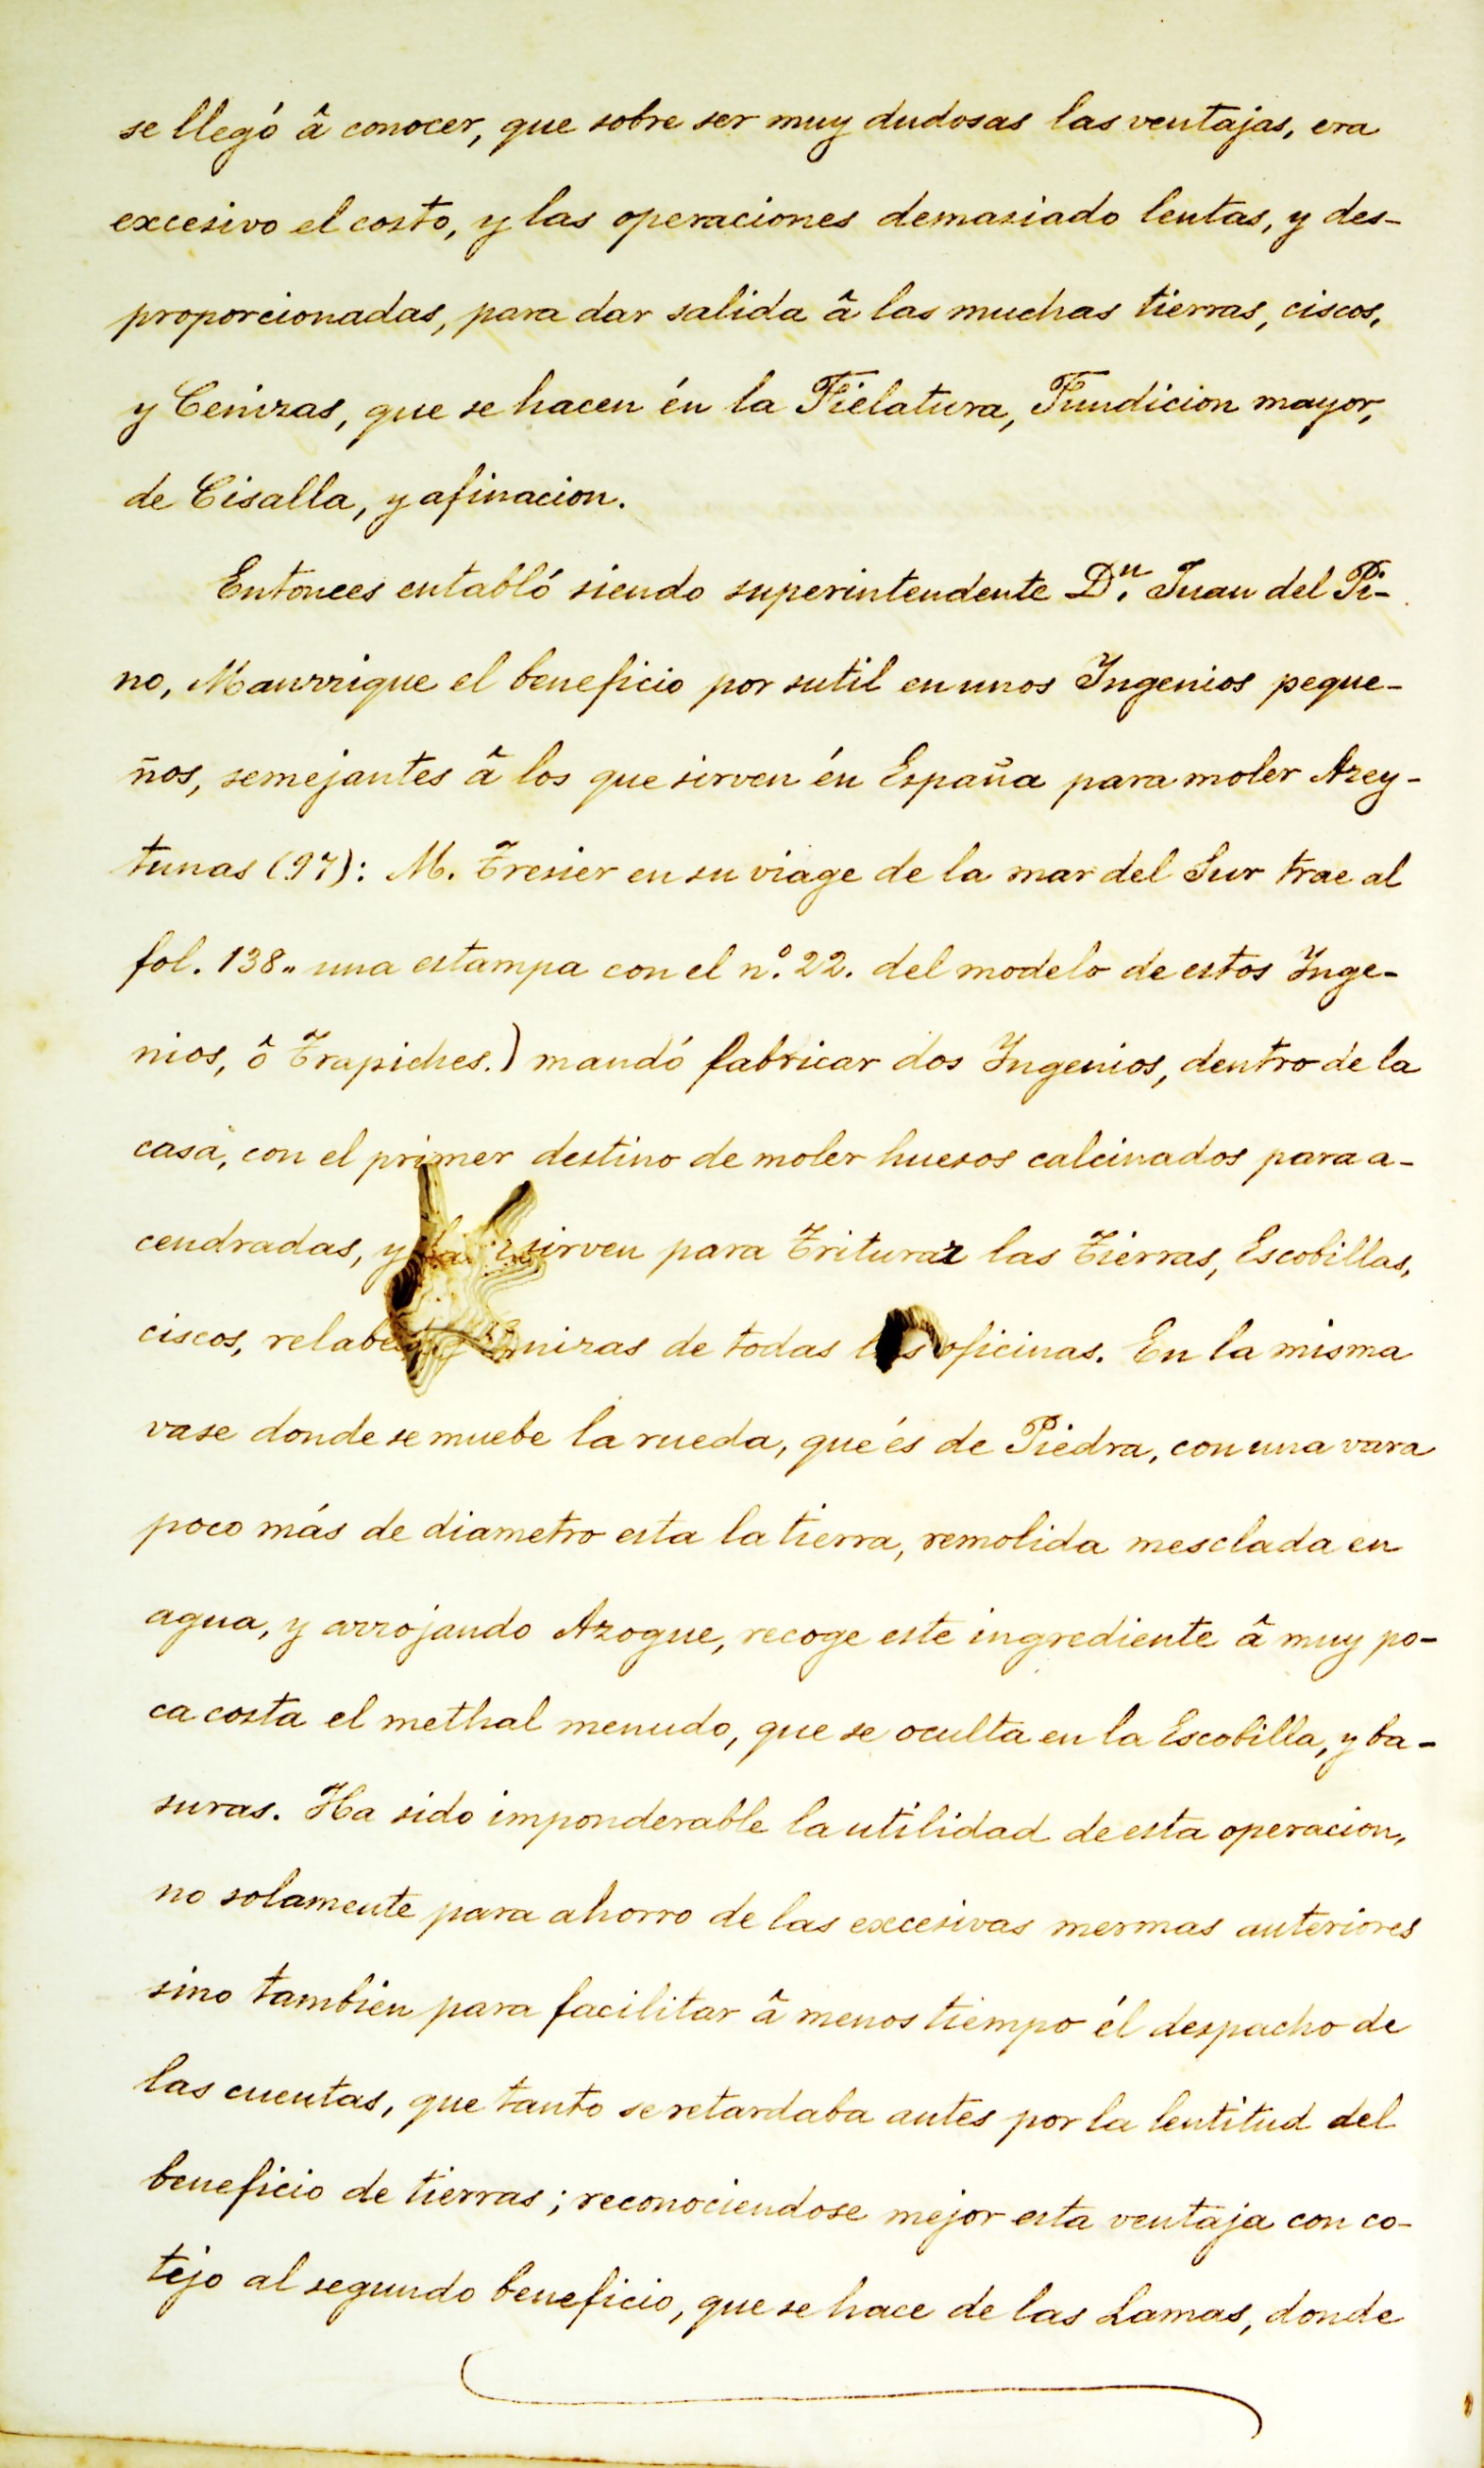 se llegó â conocer, que sobre ser muy dudosas las ventajas, era
excesivo el costo, y las operaciones demasiado lentas, y des-
proporcionadas, para dar salida â las muchas tierras, ciscos,
y Cenizas, que se hacen én la Fielatura, Fundicion mayor,
de Cisalla, y afinacion.
Entonces entabló siendo superintendente Dn. Juan del Pi-
no, Manrrique el beneficio por sutil en unos Ingenios peque-
ños, semejantes â los que sirven én España para moler Azey-
tunas (97): M. Fresier en su viage de la mar del Sur trae al
fol. 138,, una estampa con el nº. 22. del modelo de estos Inge-
nios, ô Trapiches.) mandó fabricar dos Ingenios, dentro de la
casa, con el primer destino de moler huesos calcinados para a-
cendradas, y sirven para Triturar las Tierras, Escobillas,
ciscos, de todas las oficinas. En la misma
vase donde se muebe la rueda, que és de Piedra, con una vara
poco más de diametro esta la tierra, remolida mesclada en
agua, y arrojando Azogue, recoge este ingrediente â muy po-
ca costa el methal menudo, que se oculta en la Escobilla, y ba-
suras. Ha sido imponderable la utilidad de esta operacion,
no solamente para ahorro de las excesivas mermas anteriores
sino tambien para facilitar â menos tiempo él despacho de
las cuentas, que tanto se retardaba antes por la lentitud del
beneficio de tierras; reconociendose mejor esta ventaja con co-
tejo al segundo beneficio, que se hace de las Lamas, donde